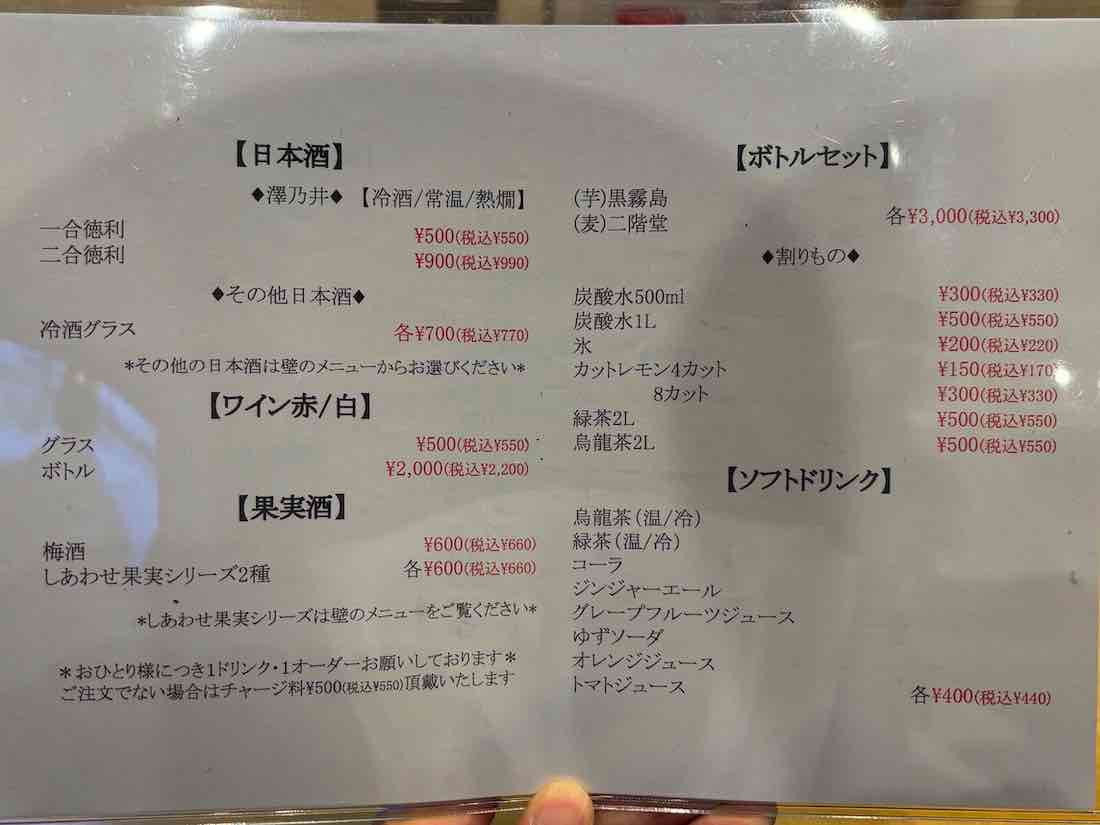 【日本酒】
◆澤乃井◆ 【冷酒/常温/熱燗】
一合徳利 ¥500(税込¥550)
二合徳利 ¥900(税込¥990)
◆その他日本酒◆
冷酒グラス 各¥700(税込¥770)
*その他の日本酒は壁のメニューからお選びください*
【ワイン赤/白】
グラス ¥500(税込¥550)
ボトル ¥2,000(税込¥2,200)
【果実酒】
梅酒 ¥600(税込¥660)
しあわせ果実シリーズ2種 各¥600(税込¥660)
*しあわせ果実シリーズは壁のメニューをご覧ください*
*おひとり様につき1ドリンク・1オーダーお願いしております*
ご注文でない場合はチャージ料¥500(税込¥550)頂戴いたします
【ボトルセット】
(芋)黒霧島
(麦)二階堂 各¥3,000(税込¥3,300)
◆割りもの◆
炭酸水500ml ¥300(税込¥330)
炭酸水1L ¥500(税込¥550)
氷 ¥200(税込¥220)
カットレモン4カット ¥150(税込¥170)
8カット ¥300(税込¥330)
緑茶2L ¥500(税込¥550)
烏龍茶2L ¥500(税込¥550)
【ソフトドリンク】
烏龍茶(温/冷)
緑茶(温/冷)
コーラ
ジンジャーエール
グレープフルーツジュース
ゆずソーダ
オレンジジュース
トマトジュース 各¥400(税込¥440)